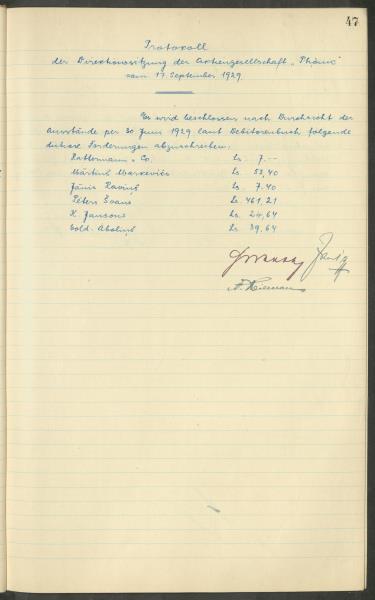 47
Protokoll
der Direktionssitzung der Aktiengesellschaft "Phönix"
vom 17. September 1929
Es wird beschlossen nach Durchsicht der
Ausstände per 30 Juni 1929 laut Debitorenbuch folgende
dubiose Forderungen abzuschreiben:
& Co. Ls. 7.--
Mārtiņš Markevičs Ls. 53,40
Jānis Ls. 7.40
Pēters Ls. 461,21
K. Jansons Ls. 24,64
Aboliņš Ls. 39,64